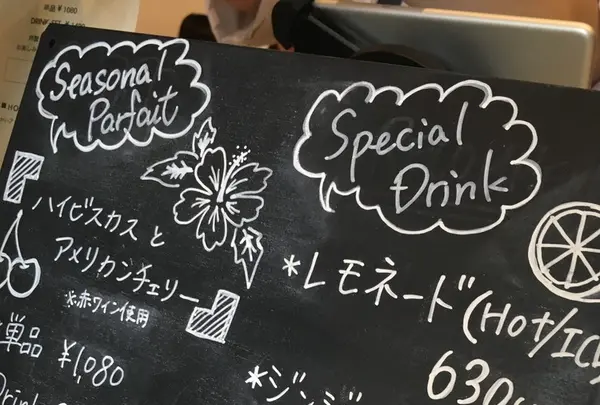 単品 ¥1080
Seasonal
Parfait
ハイビスカスと
アメリカンチェリー
※赤ワイン使用
単品 ¥1,080
Drink
Special
Drink
*レモネード(Hot/Ice
630
*ジンジ